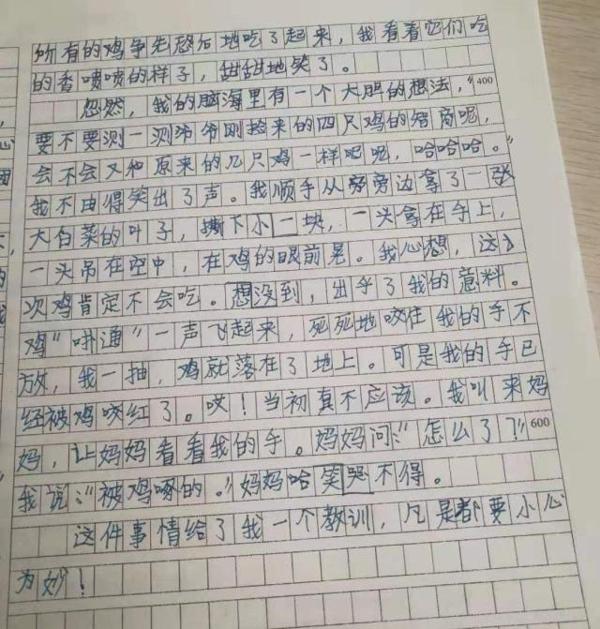 所有的鸡争先恐后地吃了起来，我看着它们吃
的香喷喷的样子，甜甜地笑了。
忽然，我的脑海里有一个大胆的想法，“ 400
要不要测一测爷爷刚捡来的四只鸡的智商呢，
会不会又和原来的几只鸡一样呢呢，哈哈哈。”
我不由得笑出了声。我顺手从旁旁边拿了一张
大白菜的叶子，撕下小一块，一头拿在手上，
一头吊在空中，在鸡的眼前晃。我心想，这
次鸡肯定不会吃。想没到，出乎了我的意料。
鸡“叶通”一声飞起来，死死地咬住我的手不
放，我一抽，鸡就落在了地上。可是我的手已
经被鸡咬红了。哎！当初真不应该。我叫来妈
妈，让妈妈看看我的手。妈妈问：“怎么了？” 600
我说：“被鸡啄的。”妈妈哈笑哭不得。
这件事情给了我一个教训，凡是都要小心
为妙！